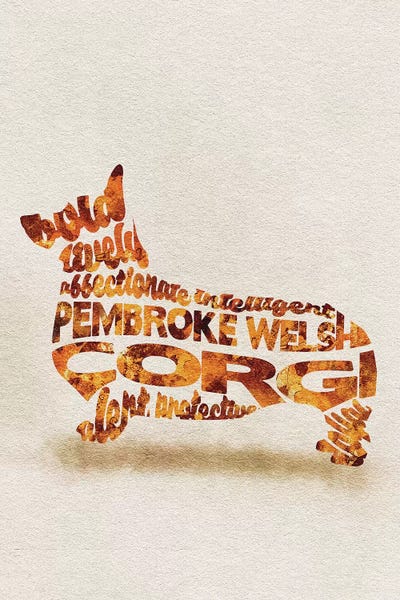 bold
lovely
affectionate intelligent
PEMBROKE WELSH
CORGI
alert protective
loyal